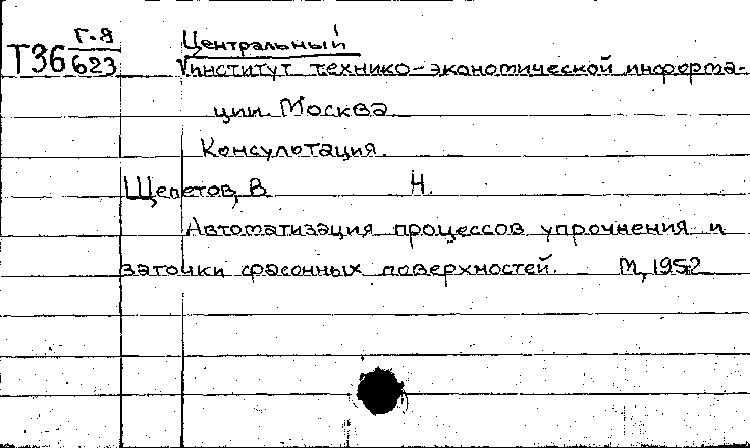 Т36 Г-9/623 Центральный
институт технико-экономической информа-
ции. Москва.
Консультация.
Щепетов, В. Н.
Автоматизация процессов упрочнения и
заточки фасонных поверхностей. М, 1952